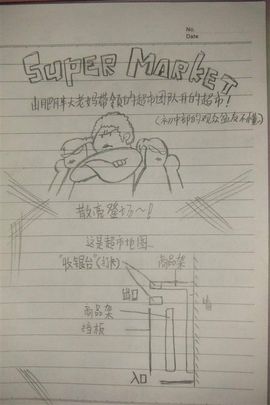 No.
Date
SUPER MARKET
由肥胖大老妈带领的超市团队开的超市！
(初中部的观众盆友不懂)
散亮登场～！
这是超市地图
"收银台"(打卡) 商品架
出口
商品架
挡板
入口